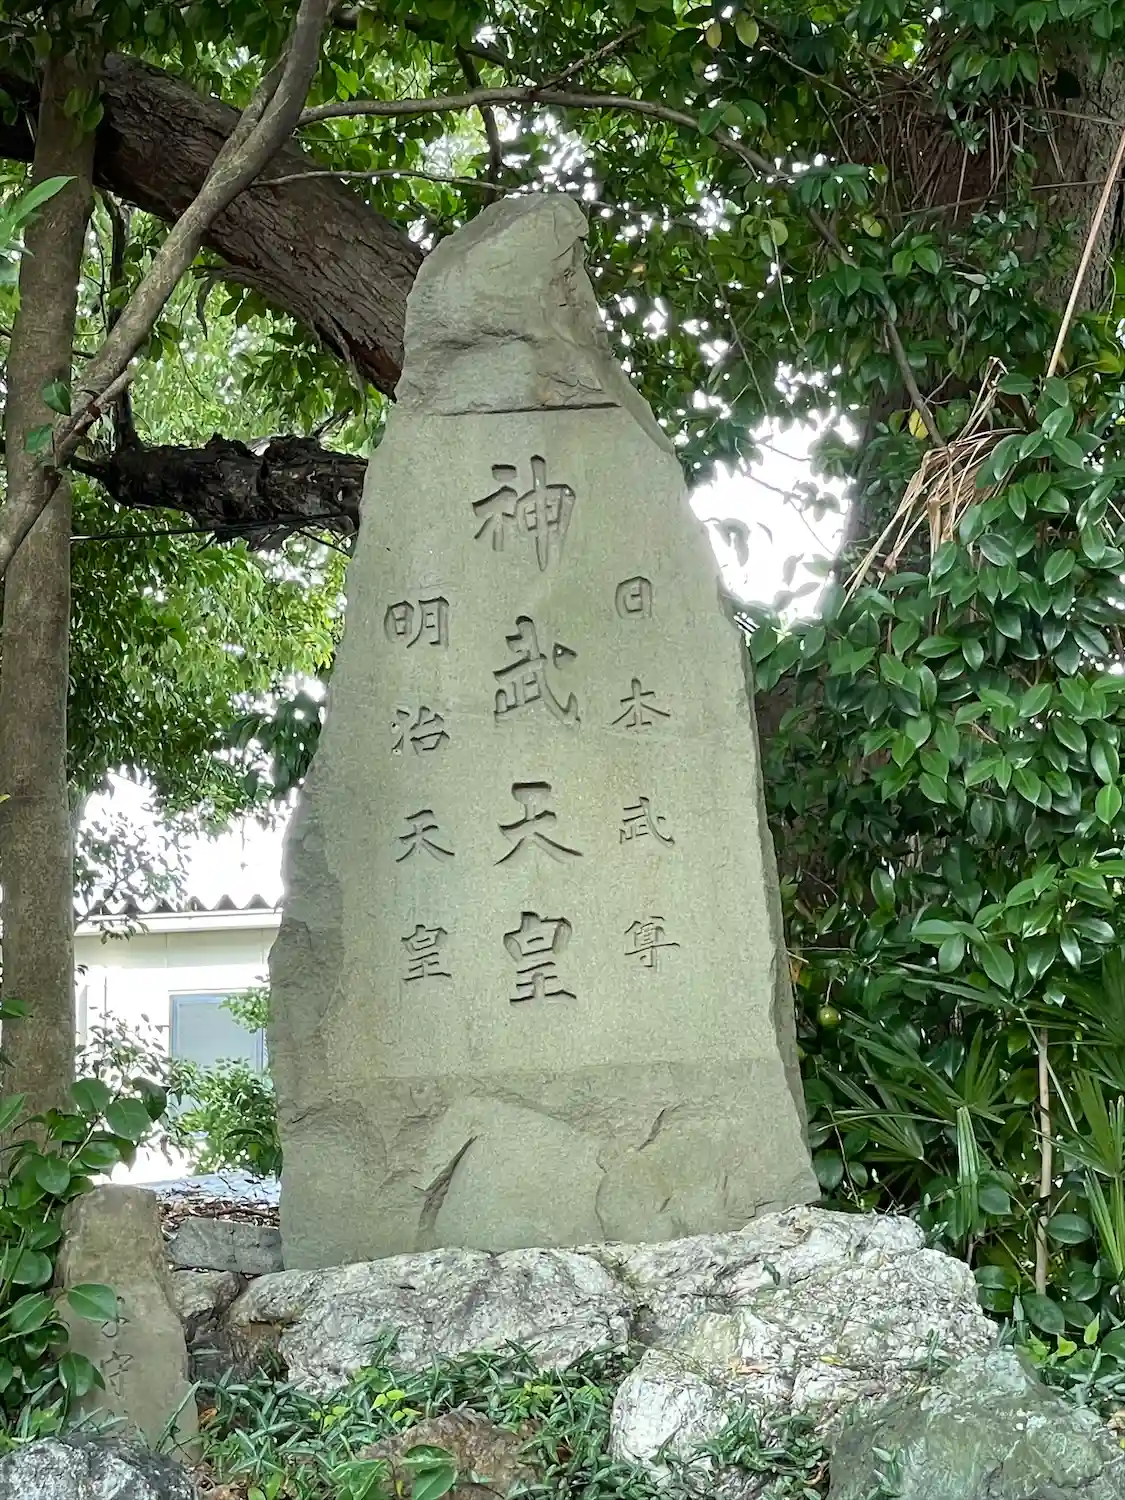 日本武尊
神武天皇
明治天皇